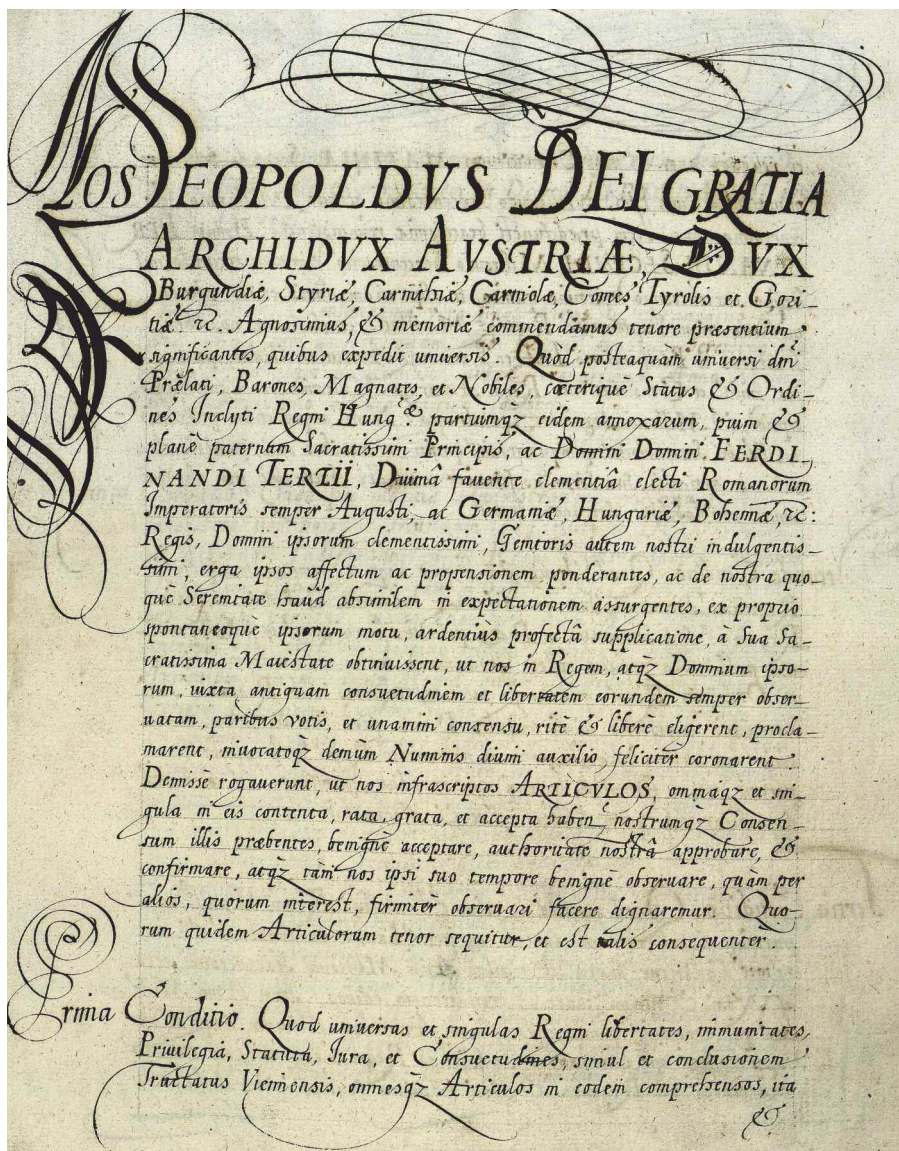 NOS LEOPOLDVS DEI GRATIA
ARCHIDVX AVSTRIÆ, DVX
Burgundiæ, Styriæ, Carinthiæ, Carniolæ, Comes Tyrolis et Gori-
tiæ. ꝛc. Agnoscimus, & memoriæ commendamus tenore præsentium
significantes, quibus expedit universis. Quòd posteaquàm universi dni
Prælati, Barones, Magnates, et Nobiles, cæteriquè Status & Ordi-
nes Inclyti Regni Hung.æ partiumqꝫ eidem annexarum, pium &
planè paternum Sacratissimi Principis, ac Domini Domini FERDI-
NANDI TERTII, Diuinâ favente clementiâ electi Romanorum
Imperatoris semper Augusti, ac Germaniæ, Hungariæ, Bohemiæ, ꝛc:
Regis, Domini ipsorum clementissimi, Genitoris autem nostri indulgentis-
simi, erga ipsos affectum ac propensionem ponderantes, ac de nostra quo-
què Serenitate haùd absimilem in expectationem assurgentes, ex proprio
spontaneoquè ipsorum motu, ardentiùs profectâ supplicatione, à Sua Sa-
cratissima Maiestate obtinuissent, ut nos in Regem, atqꝫ Dominum ipso-
rum, iuxta antiquam consuetudinem et libertatem eorundem semper obser-
uatam, paribus votis, et unanimi consensu, ritè & liberè eligerent, procla-
marent, invocatoqꝫ demùm Numinis diuini auxilio, feliciter coronarent.
Demissè rogaverunt, ut nos infrascriptos ARTICVLOS, omniaqꝫ et sin-
gula in eis contenta, rata, grata, et accepta haben. nostrumqꝫ Consen-
sum illis præbentes, benignè acceptare, authoritate nostrâ approbare, &
confirmare, atqꝫ tàm nos ipsi suo tempore benignè observare, quàm per
alios, quorum interest, firmitèr observari facere dignaremur. Quo-
rum quidem Articulorum tenor sequitur, et est talis consequenter.
Prima Conditio. Quod universas et singulas Regni libertates, immunitates,
Privilegia, Statuta, Iura, et Consuetudines, simul et conclusionem
Tractatus Viennensis, omnesqꝫ Articulos in eodem comprehensos, ita
&